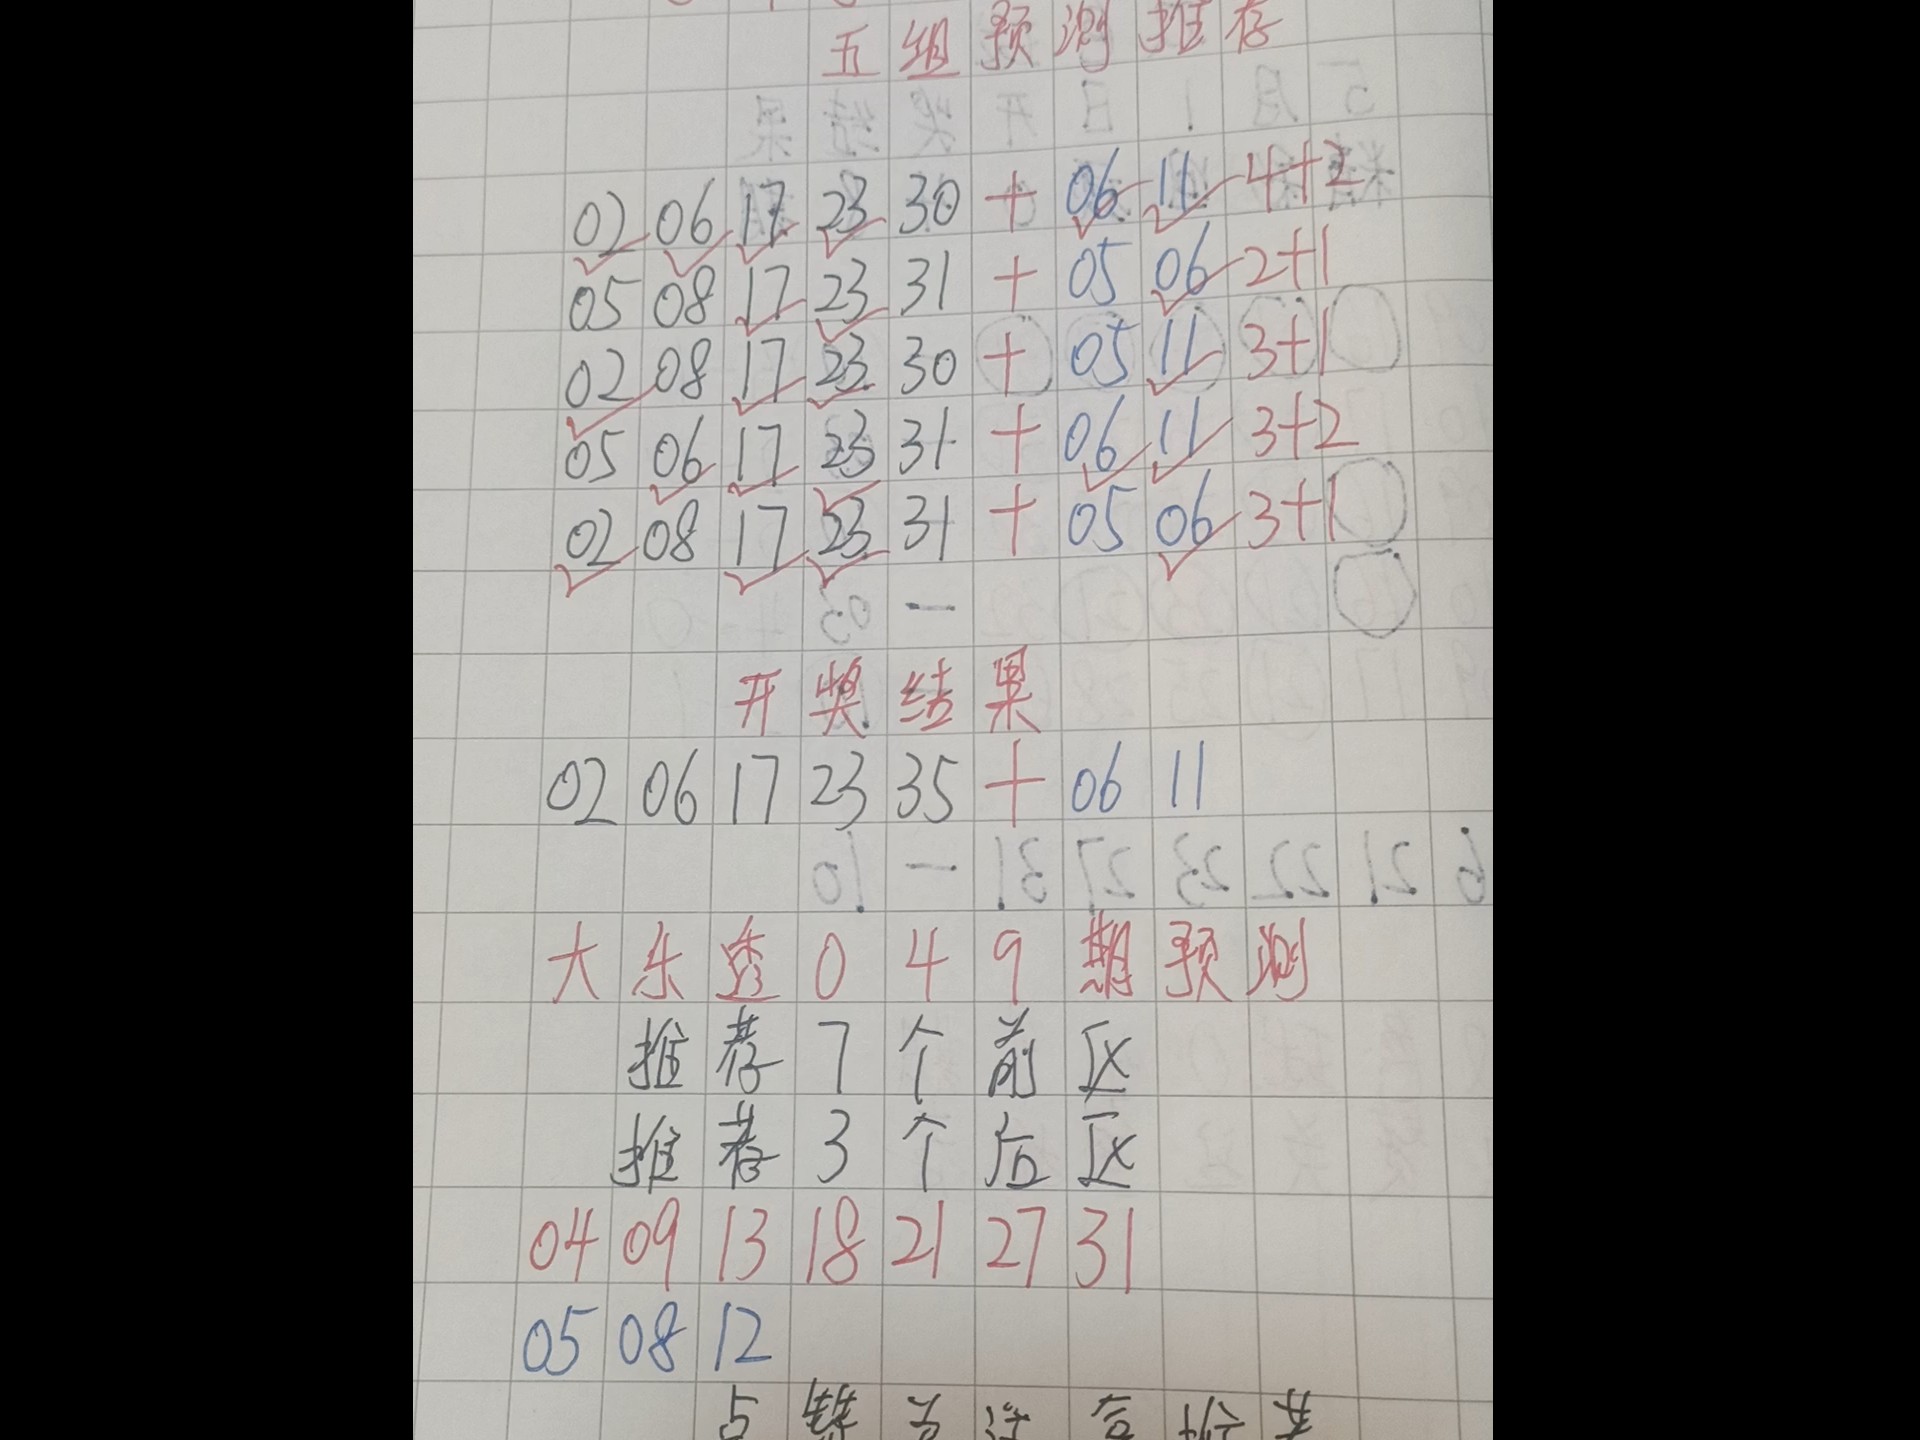 五组预测推荐
02 06 17 23 30 + 06 11 4+2
05 08 17 23 31 + 05 06 2+1
02 08 17 23 30 + 05 11 3+1
05 06 17 23 31 + 06 11 3+2
02 08 17 23 31 + 05 06 3+1
开奖结果
02 06 17 23 35 + 06 11
大乐透049期预测
推荐7个前区
推荐3个后区
04 09 13 18 21 27 31
05 08 12